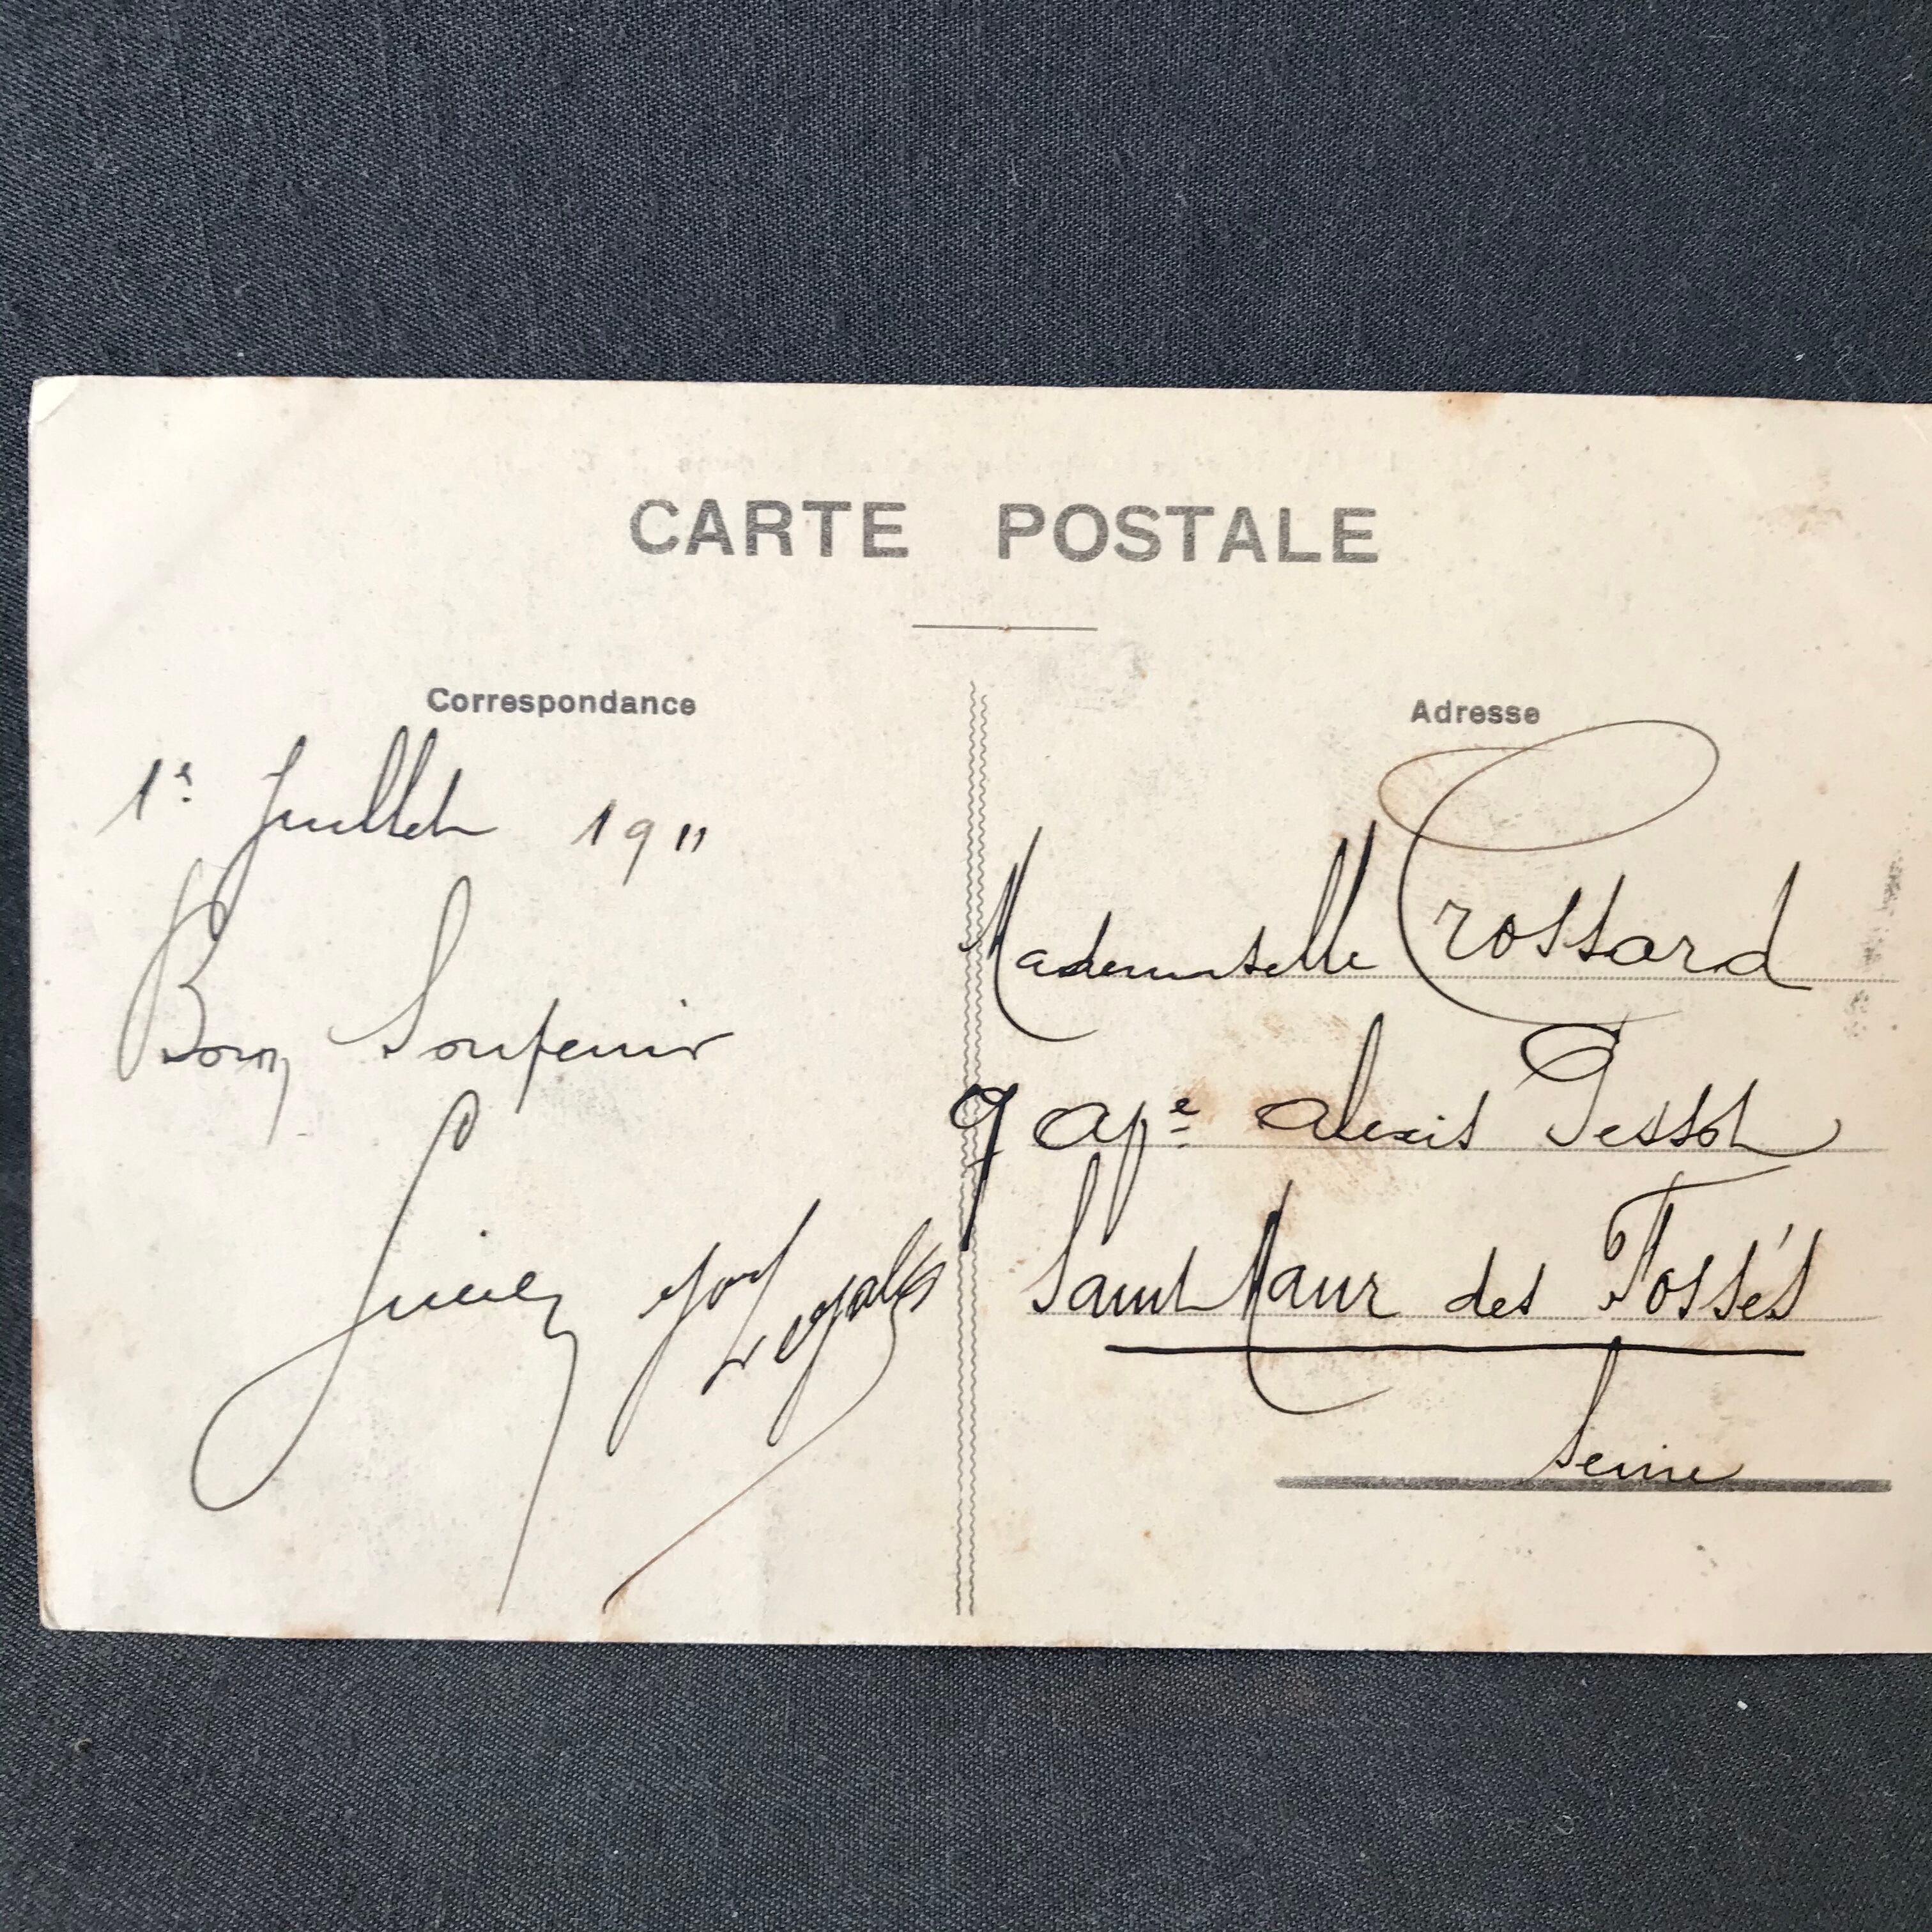 CARTE POSTALE
Correspondance
1e Juillet 1911
Bon Souvenir
Adresse
Mademoiselle Crossard
9 Ape Alexis Pessot
Saint Maur des Fossés
Seine